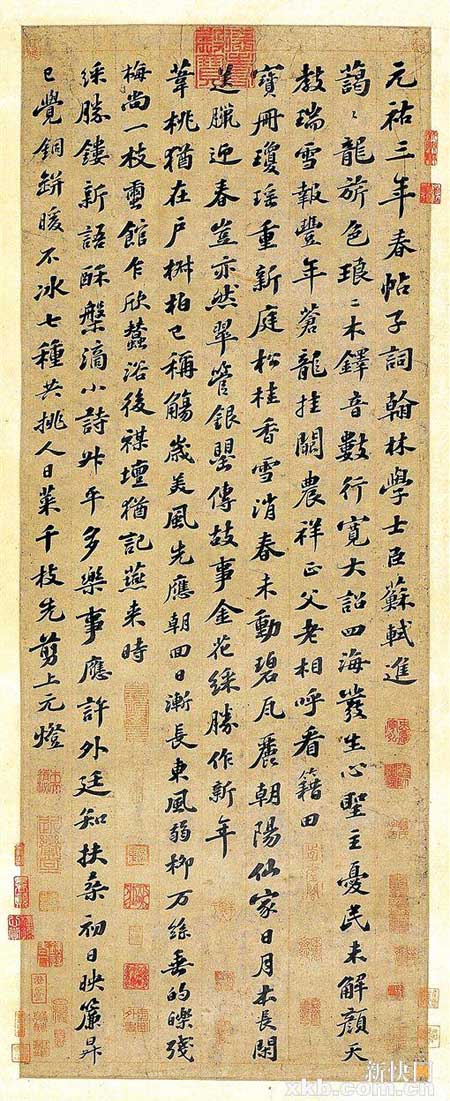 元祐三年春帖子詞翰林學士臣蘇軾進
藹〻龍旂色琅〻木鐸音數行寬大詔四海發生心聖主憂民未解顏天
教瑞雪報豐年蒼龍挂闕農祥正父老相呼看籍田
寶冊瓊瑤重新庭松桂香雪消春未動碧瓦麗朝陽仙家日月本長閑
送臘迎春豈亦然翠管銀罌傳故事金花綵勝作新年
葦桃猶在戶椒柏已稱觴歲美風先應朝回日漸長東風弱柳万絲垂的皪殘
梅尚一枝蠒館乍欣蠶浴後禖壇猶記燕来時
綵勝鏤新語酥槃滴小詩升平多樂事應許外廷知扶桑初日映簾昇
已覺銅缾暖不冰七種共挑人日菜千枝先剪上元燈
新快网
xkb.com.cn